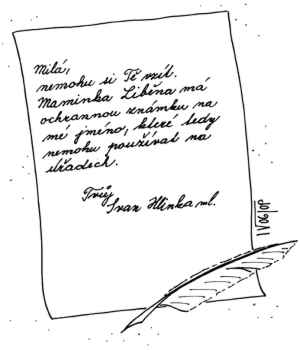 Milá,
nemohu si Tě vzít.
Maminka Liběna má
ochrannou známku na
mé jméno, které tedy
nemohu používat na
úřadech.
Tvůj
Ivan Hlinka ml.